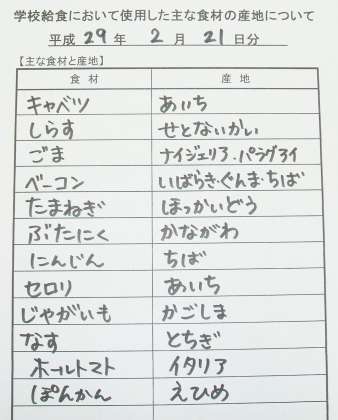 学校給食において使用した主な食材の産地について
平成 29 年 2 月 21 日分
【主な食材と産地】
食材 産地
キャベツ あいち
しらす せとないかい
ごま ナイジェリア・パラグアイ
ベーコン いばらき・ぐんま・ちば
たまねぎ ほっかいどう
ぶたにく かながわ
にんじん ちば
セロリ あいち
じゃがいも かごしま
なす とちぎ
ホールトマト イタリア
ぽんかん えひめ